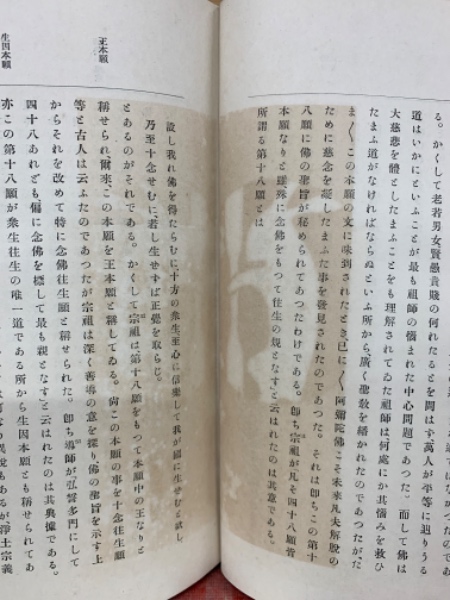 る。かくして老若男女賢愚貴賤の何れたるとを問はず、萬人が平等に辿りうる
道はいかにといふことが最も祖師の惱まれた中心問題であつた。而して佛は
大慈悲を體としたまふことをも理解されてゐた祖師は、何處にか其惱みを救ひ
たまふ道がなければならぬといふ所から、廣く聖敎を繙かれたのであつたが、た
まく この本願の文に味到されたとき、已に〳〵阿彌陀佛こそ未來凡夫解脫の
ために慈念を凝したまふた事を發見されたのであつた。それは卽ちこの第十
八願に佛の聖旨が秘められてあつたわけである。卽ち宗祖が、凡そ四十八願皆
本願なりと雖殊に念佛をもつて往生の規となす」と云はれたのは其意である。
所謂る第十八願とは
設し我れ佛を得たらむに十方の衆生至心に信樂して我が國に生せむと欲し
乃至十念せむに、若し生せずば正覺を取らじ。
とあるのがそれである。かくして宗祖は第十八願をもつて本願中の王なりと
王本願
稱せられ爾來、この本願を王本願と稱してゐる。尙この本願の事を十念往生願
等と古人は云ふたのであつたが宗祖は深く善導の意を探り佛の聖旨を示す上
からそれを改めて特に念佛往生願と稱せられた。卽ち導師が、弘誓多門にして
四十八あれども偏に念佛を標して最も親となす」と云はれたのは其典據である。
生因本願
亦この第十八願が衆生往生の唯一道である所から生因本願とも稱せられてあ